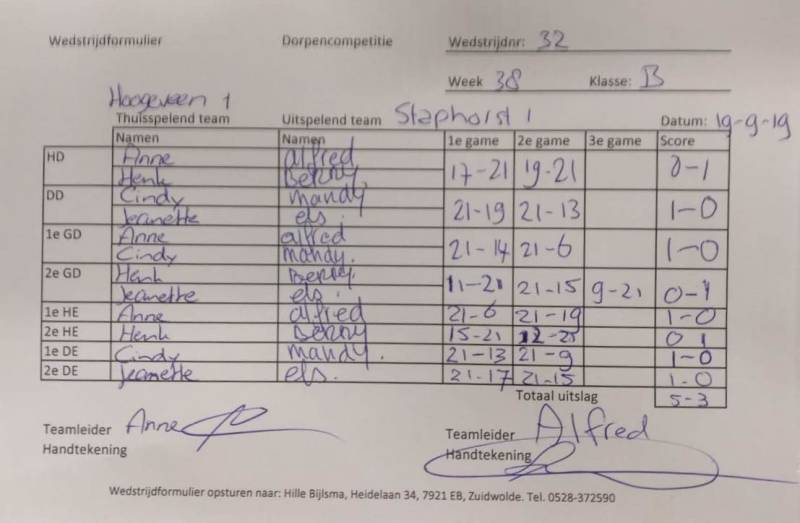 Wedstrijdformulier Dorpencompetitie Wedstrijdnr: 32
Week 38 Klasse: B
Hoogeveen 1
Thuisspelend team Uitspelend team Staphorst 1 Datum: 19-9-19
Namen Namen 1e game 2e game 3e game Score
HD Anne alfred 17-21 19-21 0-1
Henk Benny
DD Cindy mandy 21-19 21-13 1-0
Jeanette els.
1e GD Anne alfred 21-14 21-6 1-0
Cindy mandy.
2e GD Henk Benny. 11-21 21-15 9-21 0-1
Jeanette els.
1e HE Anne alfred 21-6 21-19 1-0
2e HE Henk Benny 15-21 12-21 0 1
1e DE Cindy mandy. 21-13 21-9 1-0
2e DE Jeanette els. 21-17 21-15 1-0
Totaal uitslag 5-3
Teamleider Anne Teamleider Alfred
Handtekening Handtekening
Wedstrijdformulier opsturen naar: Hille Bijlsma, Heidelaan 34, 7921 EB, Zuidwolde. Tel. 0528-372590